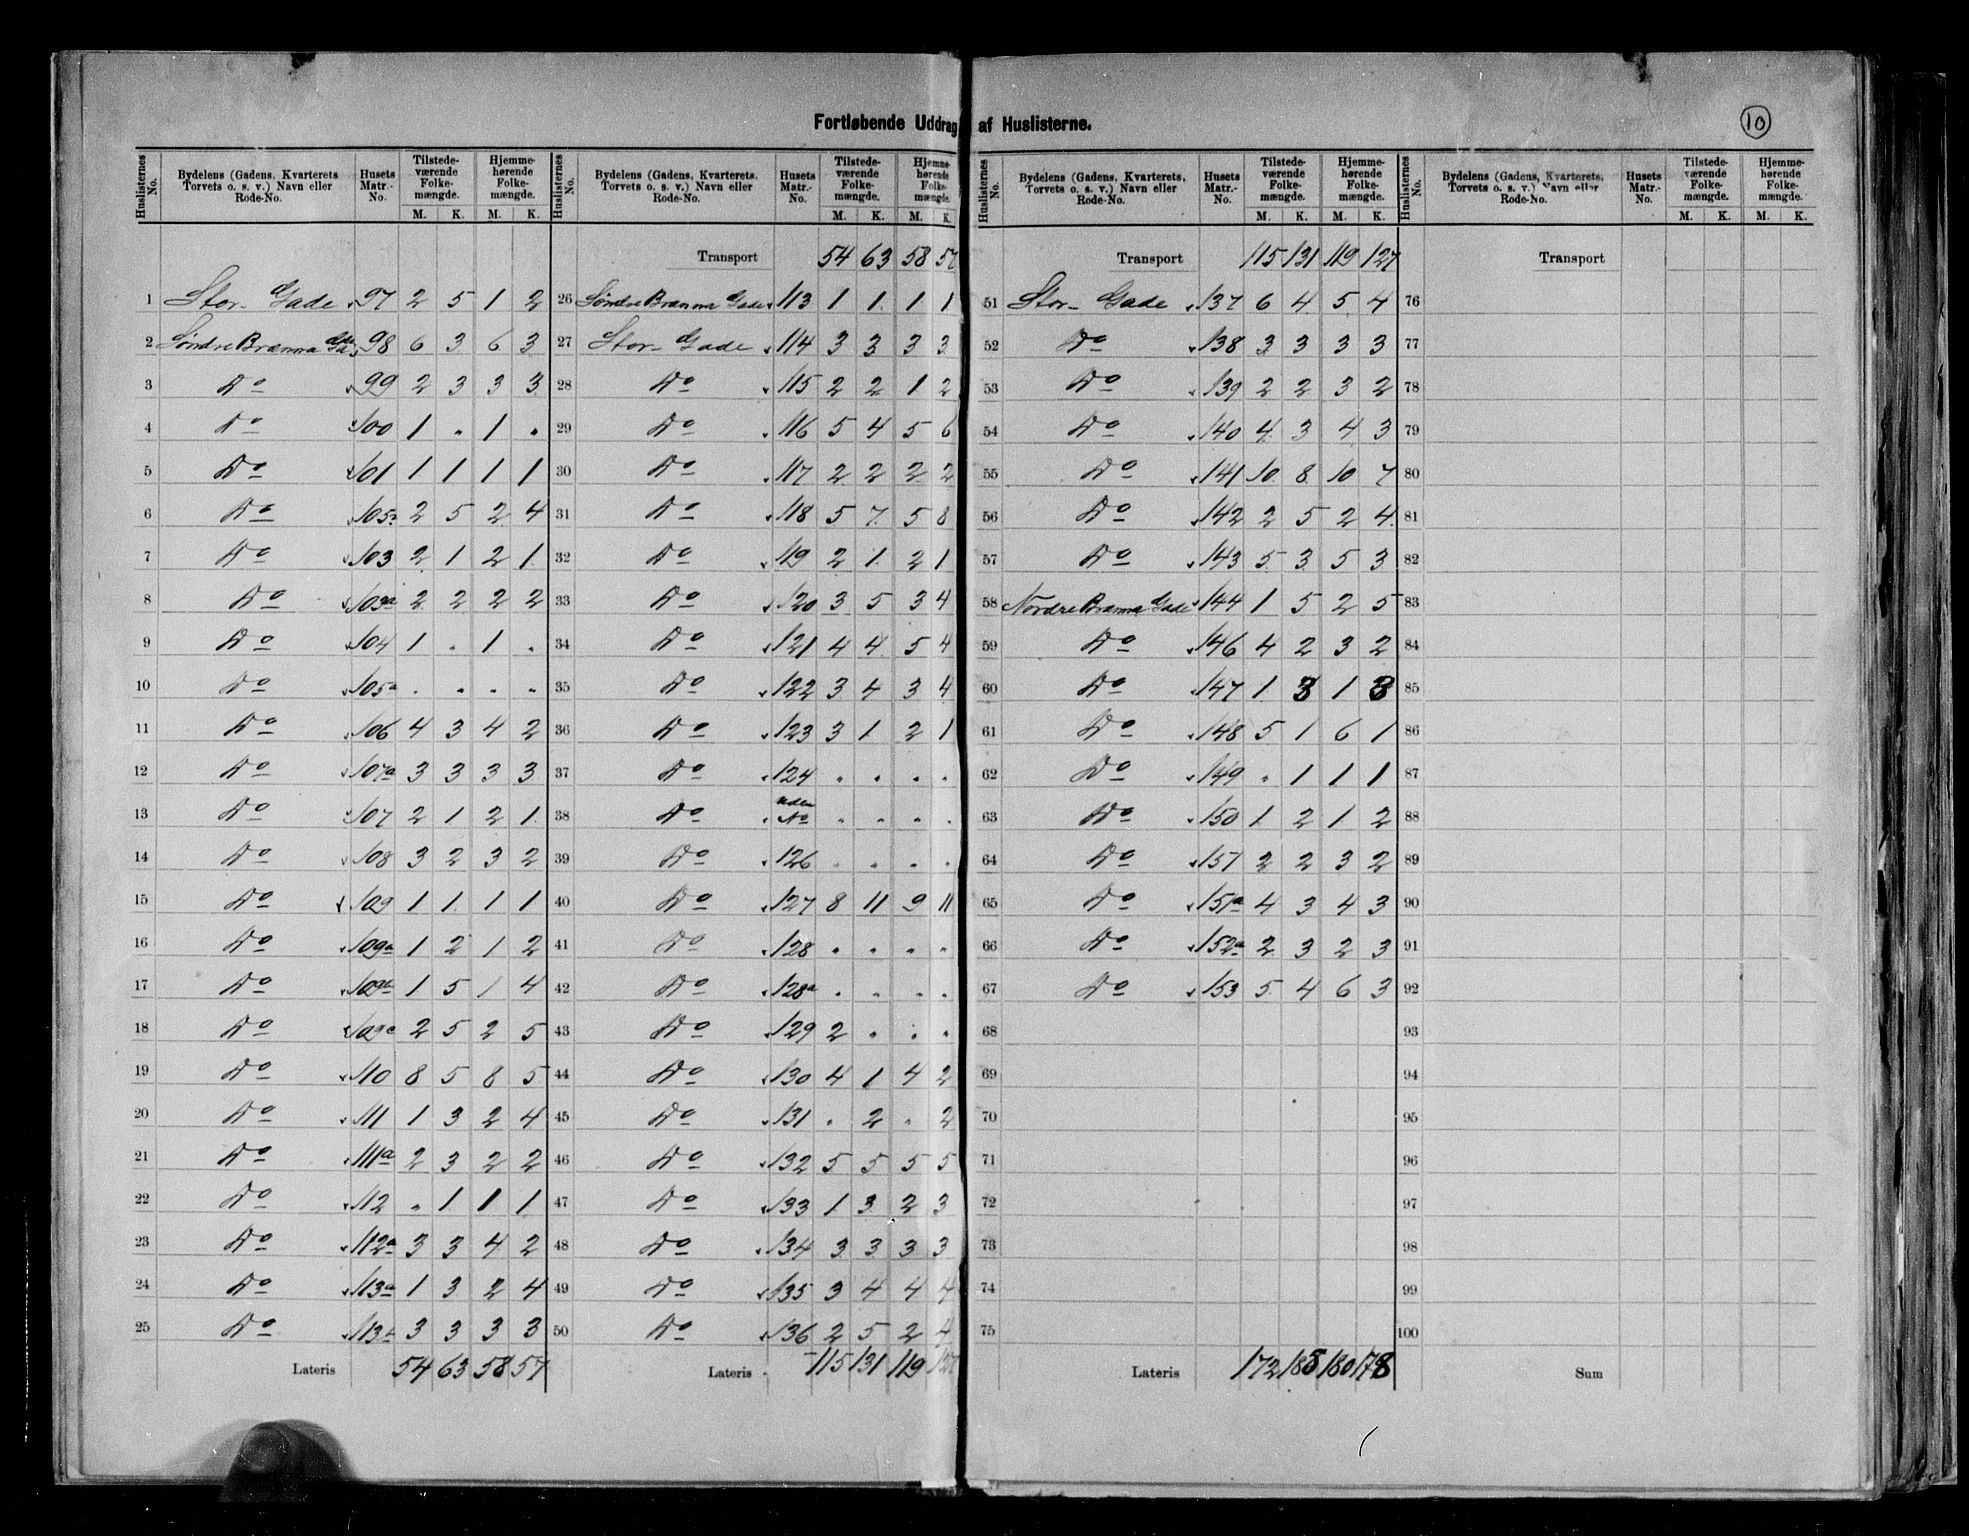 Fortløbende Uddrag af Huslisterne.
10
Huslisternes No. | Bydelens (Gadens, Kvarterets Torvets o. s. v.) Navn eller Rode-No. | Husets Matr.-No. | Tilstedeværende Folkemængde. M. K. | Hjemmehørende Folkemængde. M. K.
1 Stor- Gade 97 2 5 1 2
2 Søndre Brænna Gade 98 6 3 6 3
3 Do 99 2 3 3 3
4 Do 100 1 " 1 "
5 Do 101 1 1 1 1
6 Do 105 2 5 2 4
7 Do 103 2 1 2 1
8 Do 103a 2 2 2 2
9 Do 104 1 " 1 "
10 Do 105a " " " "
11 Do 106 4 3 4 2
12 Do 107a 3 3 3 3
13 Do 107 2 1 2 1
14 Do 108 3 2 3 2
15 Do 109 1 1 1 1
16 Do 109a 1 2 1 2
17 Do 109b 1 5 1 4
18 Do 109c 2 5 2 5
19 Do 110 8 5 8 5
20 Do 111 1 3 2 4
21 Do 111a 2 3 2 2
22 Do 112 " 1 1 1
23 Do 112a 3 3 4 2
24 Do 113a 1 3 2 4
25 Do 113b 3 3 3 3
Lateris 54 63 58 57
Huslisternes No. | Bydelens (Gadens, Kvarterets Torvets o. s. v.) Navn eller Rode-No. | Husets Matr.-No. | Tilstedeværende Folkemængde. M. K. | Hjemmehørende Folkemængde. M. K.
Transport 54 63 58 57
26 Søndre Brænna Gade 113 1 1 1 1
27 Stor- Gade 114 3 3 3 3
28 Do 115 2 2 1 2
29 Do 116 5 4 5 6
30 Do 117 2 2 2 2
31 Do 118 5 7 5 8
32 Do 119 2 1 2 1
33 Do 120 3 5 3 4
34 Do 121 4 4 5 4
35 Do 122 3 4 3 4
36 Do 123 3 1 2 1
37 Do 124 " " " "
38 Do uden No " " " "
39 Do 126 " " " "
40 Do 127 8 11 9 11
41 Do 128 " " " "
42 Do 128a " " " "
43 Do 129 2 " " "
44 Do 130 4 1 4 2
45 Do 131 " 2 " 2
46 Do 132 5 5 5 5
47 Do 133 1 3 2 3
48 Do 134 3 3 3 3
49 Do 135 3 4 4 4
50 Do 136 2 5 2 4
Lateris 115 131 119 127
Huslisternes No. | Bydelens (Gadens, Kvarterets, Torvets o. s. v.) Navn eller Rode-No. | Husets Matr.-No. | Tilstedeværende Folkemængde. M. K. | Hjemmehørende Folkemængde. M. K.
Transport 115 131 119 127
51 Stor- Gade 137 6 4 5 4
52 Do 138 3 3 3 3
53 Do 139 2 2 3 2
54 Do 140 4 3 4 3
55 Do 141 10 8 10 7
56 Do 142 2 5 2 4
57 Do 143 5 3 5 3
58 Nordre Brænna Gade 144 1 5 2 5
59 Do 146 4 2 3 2
60 Do 147 1 3 1 3
61 Do 148 5 1 6 1
62 Do 149 " 1 1 1
63 Do 150 1 2 1 2
64 Do 151 2 2 3 2
65 Do 151a 4 3 4 3
66 Do 152a 2 3 2 3
67 Do 153 5 4 6 3
68
69
70
71
72
73
74
75
Lateris 172 185 180 178
Huslisternes No. | Bydelens (Gadens, Kvarterets, Torvets o. s. v.) Navn eller Rode-No. | Husets Matr.-No. | Tilstedeværende Folkemængde. M. K. | Hjemmehørende Folkemængde. M. K.
Transport
76
77
78
79
80
81
82
83
84
85
86
87
88
89
90
91
92
93
94
95
96
97
98
99
100
Sum